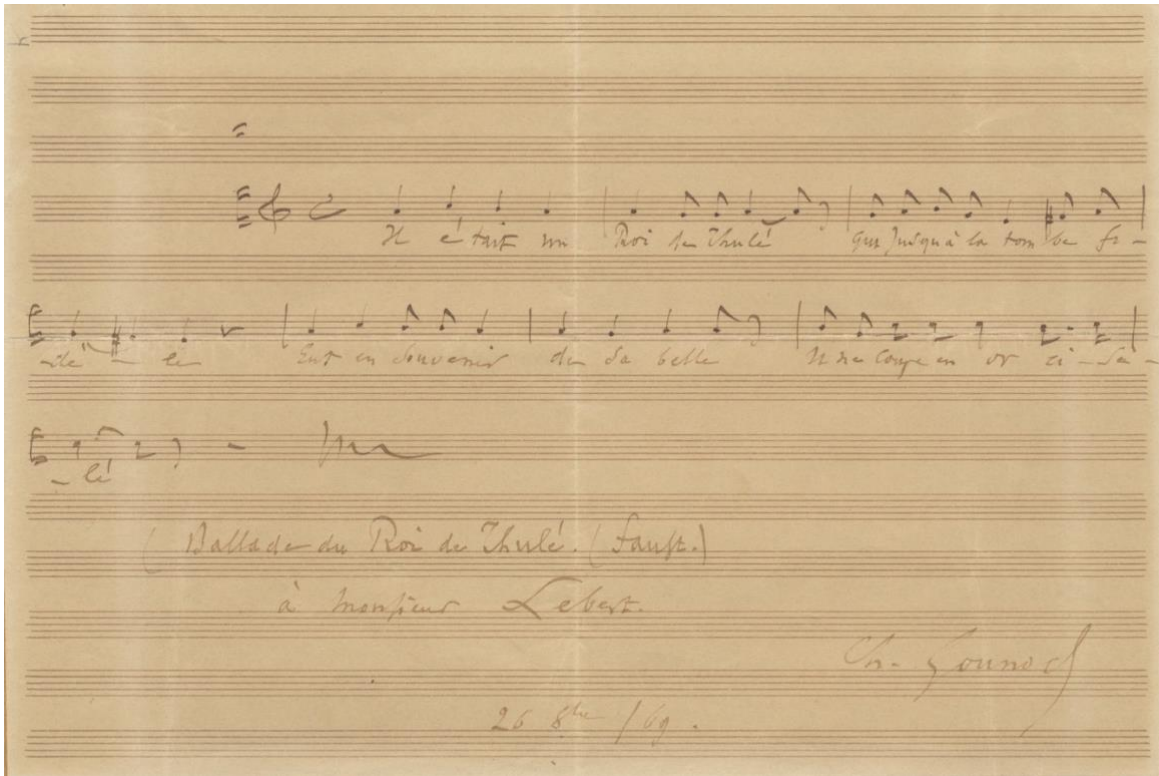 Il é tait un Roi de Thulé qui jusqu'à la tom be fi -
- dè - le Eut en souvenir de sa belle Une coupe en or ci - se -
- lé
(Ballade du Roi de Thulé. (Faust.)
à Monsieur Lebert.
Ch. Gounod
26 8bre / 69.